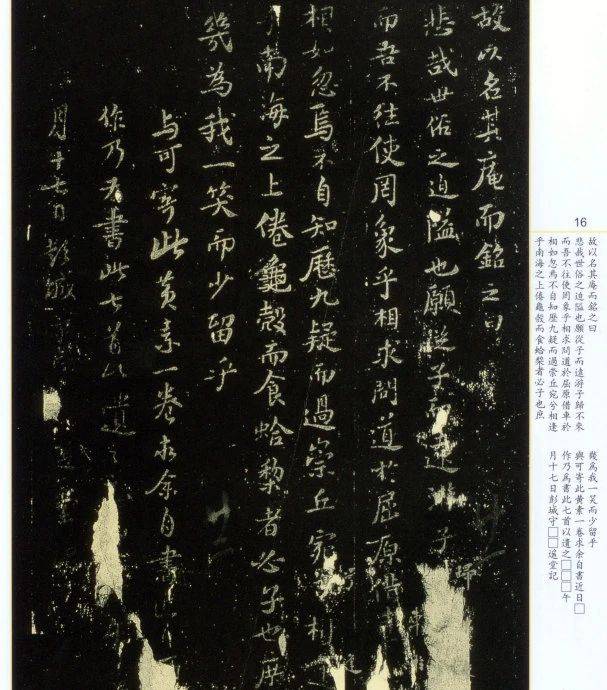 16
故以名其庵而銘之曰
悲哉世俗之迫隘也願從子而遠游子歸不來
而吾不往使罔象乎相求問道於屈原借車於
相如忽焉不自知歷九疑而過崇丘宛兮相逢
乎南海之上倦龜殼而食蛤棃者必子也庶
幾為我一笑而少留乎
與可寄此黃素一卷求余自書近日□
作乃為書此七首以遺之□□□年
月十七日彭城守□□逍堂記
故以名其庵而銘之曰
悲哉世俗之迫隘也願從子而遠游子歸
而吾不往使罔象乎相求問道於屈原借車
相如忽焉不自知歷九疑而過崇丘宛兮相逢
乎南海之上倦龜殼而食蛤棃者必子也庶
幾為我一笑而少留乎
与可寄此黃素一卷求余自書
作乃為書此七首以遺之
月十七日彭城